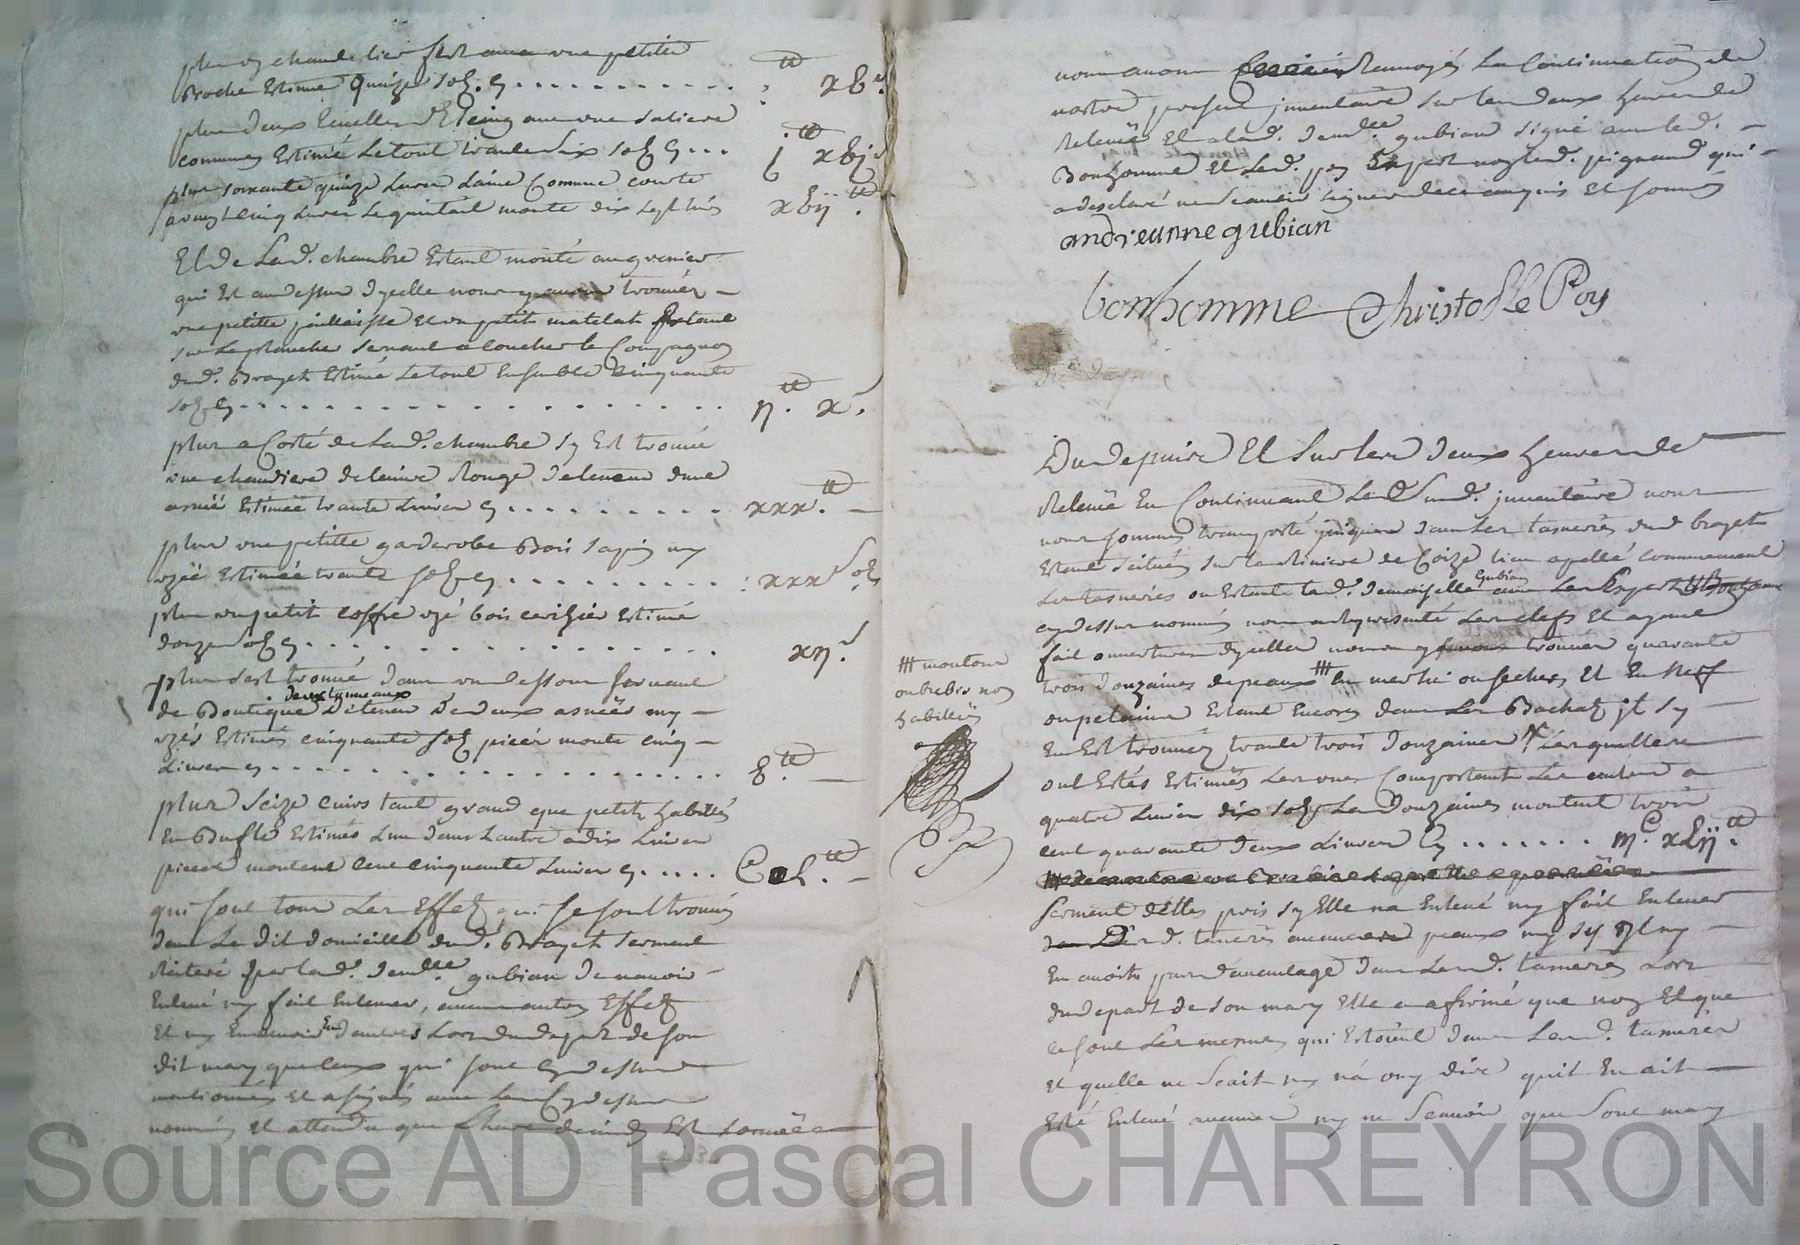 plus un chandelier fert avec une petitte
Broche Estimé Quinze solz cy . . . . . . . . . . . : ₶ xv s
plus deux Ecuelles d'Eteing avec une saliere
commune Estimé Le tout trante six solz cy . . . j ₶ xvj s
plus soixante quinze Livres Laine Commune courte
a vingt cinq Livres Le quintail monte dix sept livres xvij ₶ .
Et de Lad. chambre Estant monté au grenier
qui Est au dessus d'ycelle nous y avons trouvés
une petitte paillaisse et un petit matelat Estant
sur Le plancher servant a coucher le Compagnon
dud. Brayet Estimé Le tout Ensemble Cinquante
solz cy . . . . . . . . . . . . . . . . . . ij ₶ . x s .
plus a Costé de Lad. chambre sy Est trouvé
une chaudiere de Cuivre Rouge de tenue d'une
asnéé Estimée trante Livres cy . . . . . . . . . xxx ₶ . —
plus une petitte garderobe Bois sapin my
uzéé Estimée trante solz cy . . . . . . . . . : xxx solz
plus un petit coffre uzé bois cerizier Estimé
douze solz cy . . . . . . . . . . . . . . . xij s
plus s'est trouvé dans un dessous servant
deux tonneaux
de Boutique De tenue De deux asnéés my —
uzés Estimés cinquante solz piece monte cinq —
Livres cy . . . . . . . . . . . . . . . . . . v ₶ . —
plus seize cuirs tant grand que petits habillés
En Buffle Estimés L'un dans L'autre a dix Livres
piece montent cent cinquante Livres cy . . . . . C L ₶ . —
qui sont tous Les Effetz qui se sont trouvés
dans Le dit domicille dud. Brayet serment
Reiteré par lad. demlle gubian de n'avoir
Enlevé ny fait Enlever, aucuns autres Effetz
Et ny En avoir Eu d'autres Lors du depart de son
dit mary que ceux qui sont cy dessus
mentionnés Et a signé avec Les Cy dessus
nommés Et attendu que L'heure de midy Est sonnéé
nous avons Renvoyés La Continuation de
nostre present jnventaire sur les deux heures de
Relevéé Et a lad. demlle gubian signé avec led. —
Bonhomme Et Led. poy Expert non led. peignaud qui —
a desclaré ne scavoir signer de ce enquis Et sommé
andreanne gubian
bonhomme Christofle Poy
Dudepuis Et Sur les deux heures de
Relevéé En Continuant Led. Susd. jnventaire nous
nous sommes transporté jusques dans Les tasneries dud brayet
Estant scituées sur la Riviere de Coize lieu apellé communement
Gubian
Les tasneries ou Estant lad. demoiselle avec Les Expert
cy dessus nommés nous a representé Les clefs Et ayant
fait ouverture d'ycelles nous y avons trouvés quarante
trois douzaines de peaux ### En mestié ou seches Et En Nerf
### moutons
ou brebis non
habillées
ou pelainne Estant Encores dans Les Bachatz jl sy
En Est trouvés trante trois douzaines Lesquelles
ont Estés Estimées Les unes Comportant Les autres a
quatre Livres dix solz La douzaine montent trois
cent quarante deux Livres Cy . . . . . . . iij C xLij ₶ .
serment d'Elles pris sy Elle na Enlevé ny fait Enlever
desd. tanneries aucunes peaux ny sy jl ny —
En avoit pas d'avantage dans Lesd. tanneries Lors
du depart de son mary Elle a afirmé que non Et que
ce sont Les mesmes qui Estoient dans Lesd. tanneries
Et quelle ne scait ny n'a ouy dire quil En ait
Esté Enlevé aucunes ny ne scavoir que sont mary
Source AD Pascal CHAREYRON